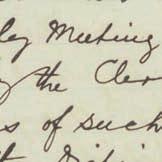 ley Meeting
the Cler
s of such